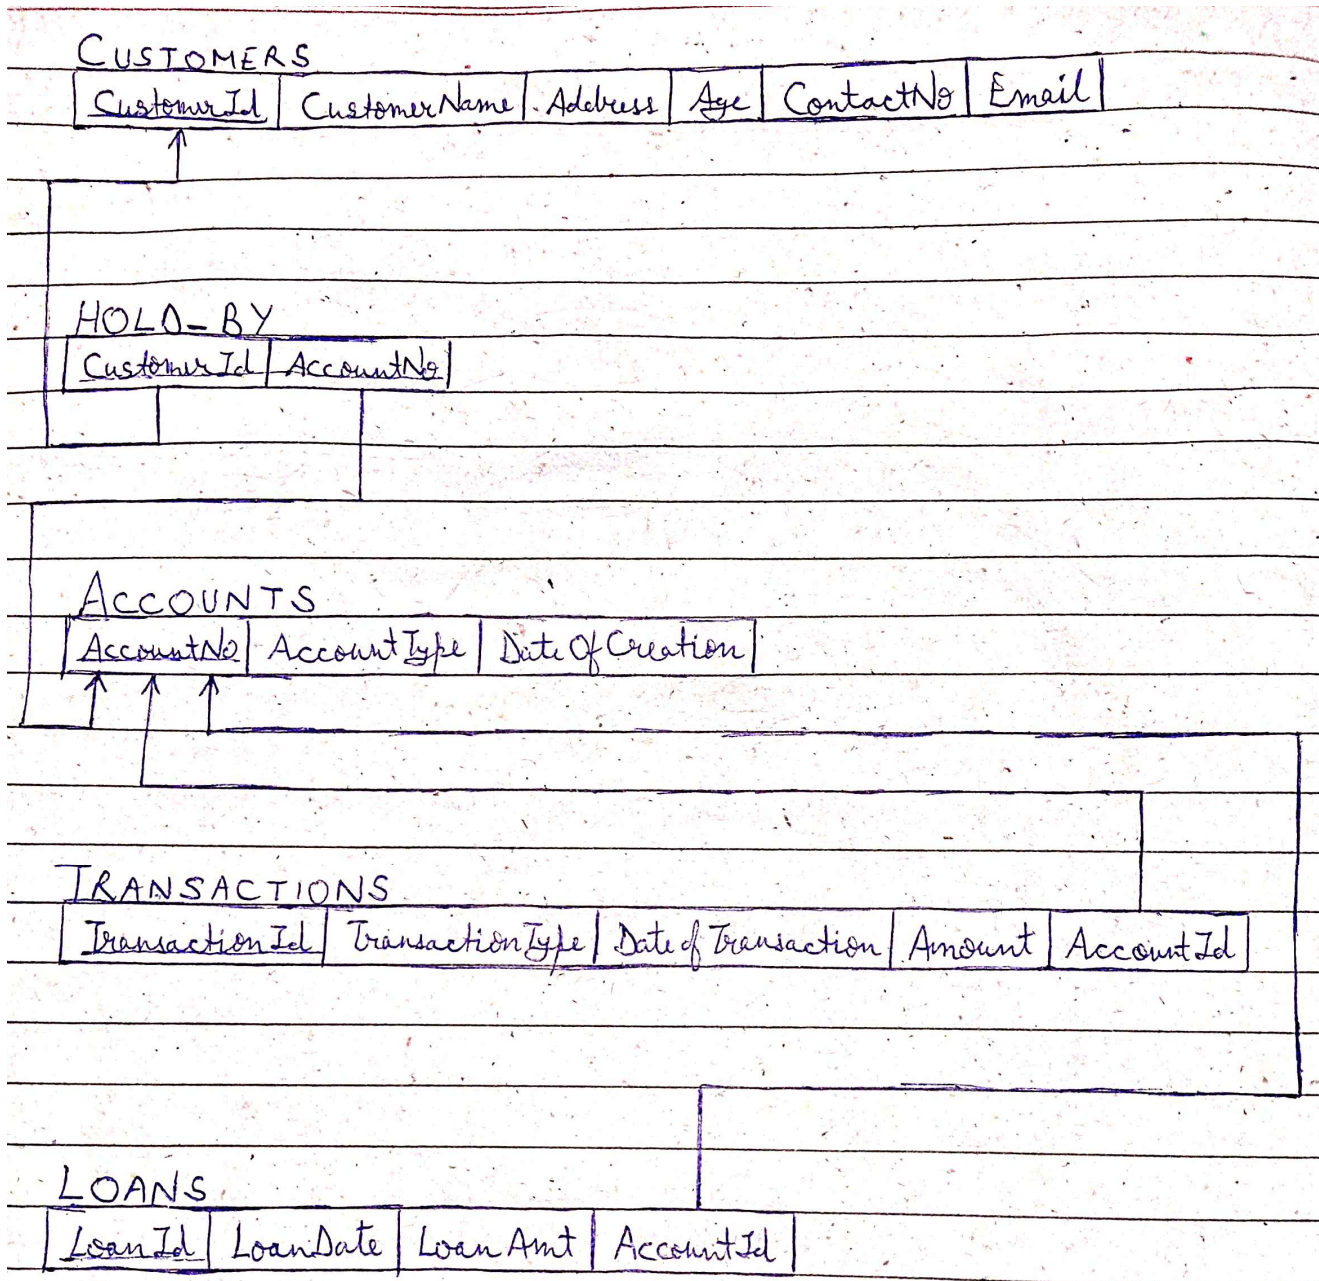 CUSTOMERS
CustomerId CustomerName Address Age ContactNo Email
HOLD_BY
CustomerId AccountNo
ACCOUNTS
AccountNo AccountType DateOfCreation
TRANSACTIONS
TransactionId TransactionType DateofTransaction Amount AccountId
LOANS
LoanId LoanDate LoanAmt AccountId